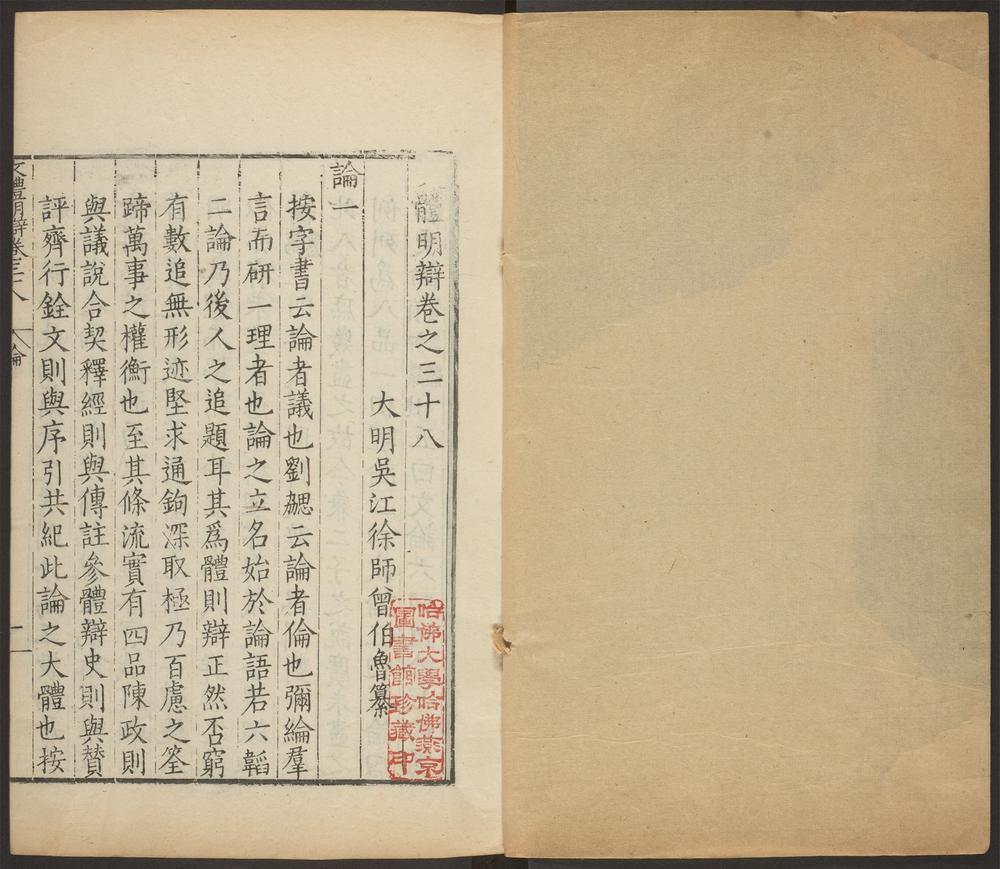 體明辯卷之三十八
大明吳江徐師曾伯魯纂
論一
按字書云論者議也劉勰云論者倫也彌綸羣
言而研一理者也論之立名始於論語若六韜
二論乃後人之追題耳其爲體則辯正然否窮
有數追無形迹堅求通鉤深取極乃百慮之筌
蹄萬事之權衡也至其條流實有四品陳政則
與議說合契釋經則與傳註參體辯史則與贊
評齊行銓文則與序引共紀此論之大體也按
文體明辯卷三十八 論 一
哈佛大學哈佛燕京
圖書館珍藏印